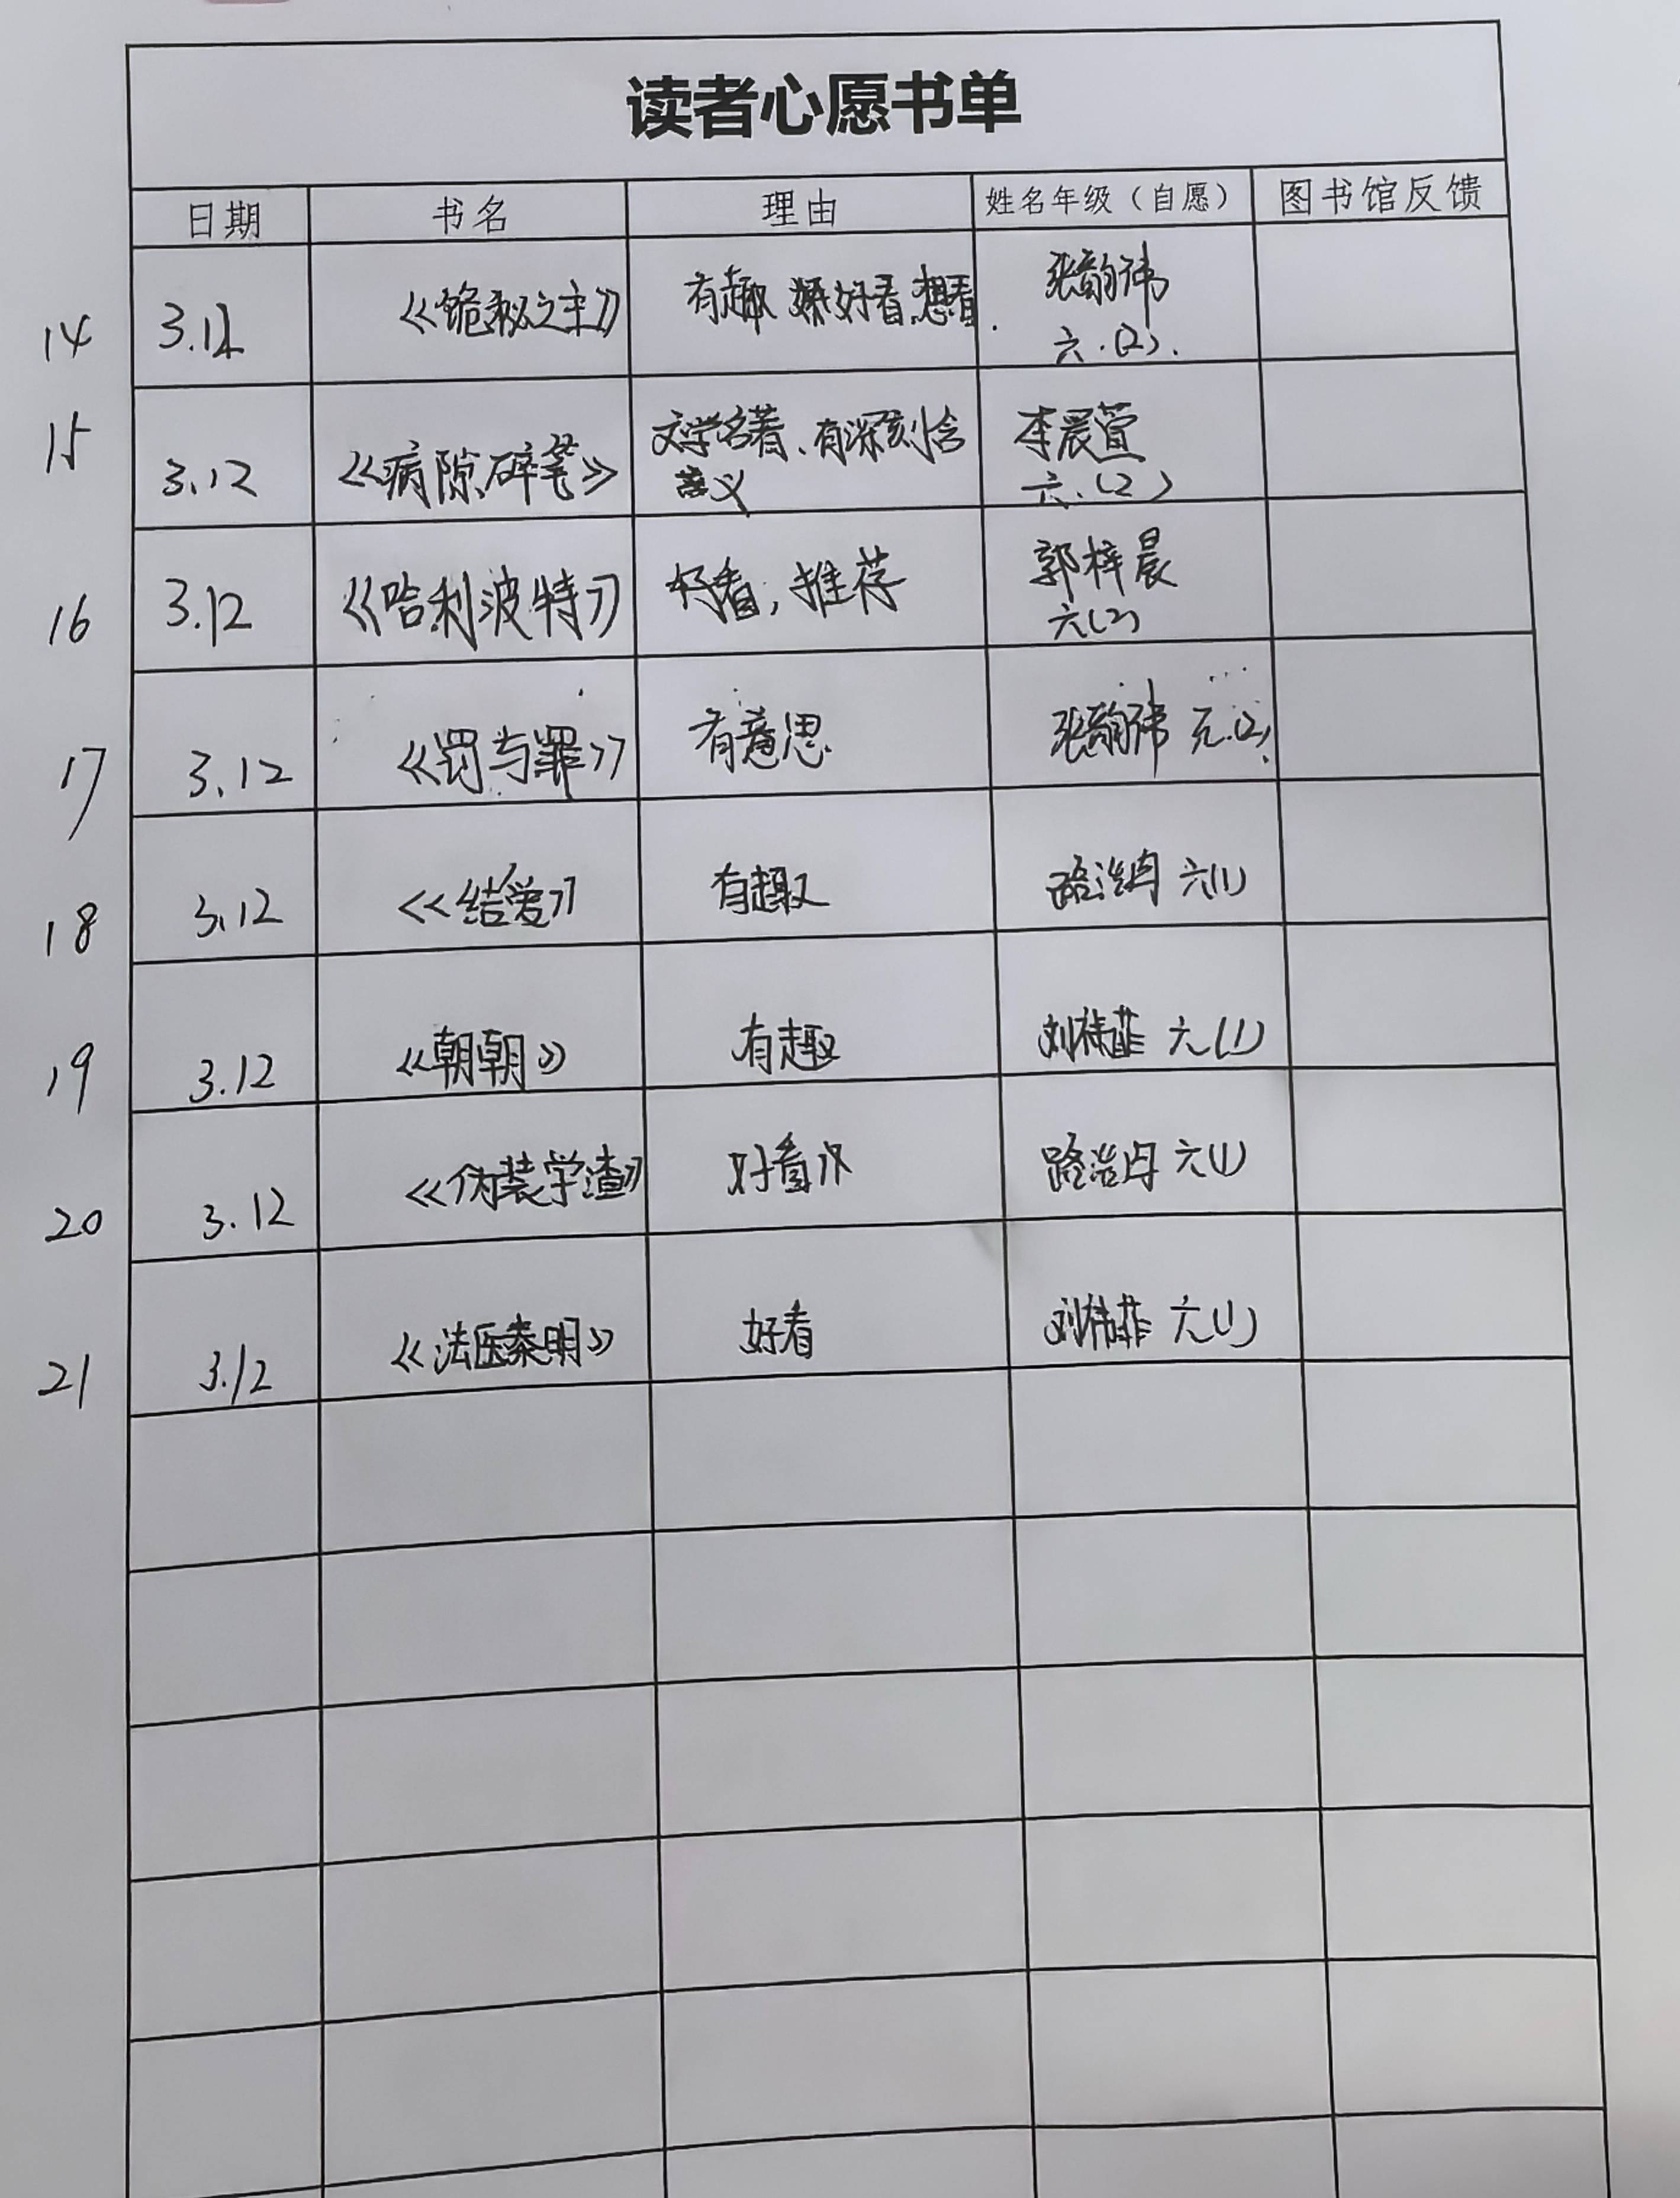 读者心愿书单
日期 书名 理由 姓名年级（自愿） 图书馆反馈
14 3.12 《诡秘之主》 有趣 好看.想看. 张韵祎
六.(2).
15 3.12 《病隙碎笔》 文学名著、有深刻含 李晨萱
义 六.(2)
16 3.12 《哈利波特》 好看，推荐 郭梓晨
六(2)
17 3.12 《罚与罪》 有意思. 张韵祎 六.(2).
18 3.12 《结爱》 有趣 路 六(1)
19 3.12 《朝朝》 有趣 刘祎菲 六(1)
20 3.12 《伪装学渣》 好看 路 六(1)
21 3.12 《法医秦明》 好看 刘祎菲 六(1)